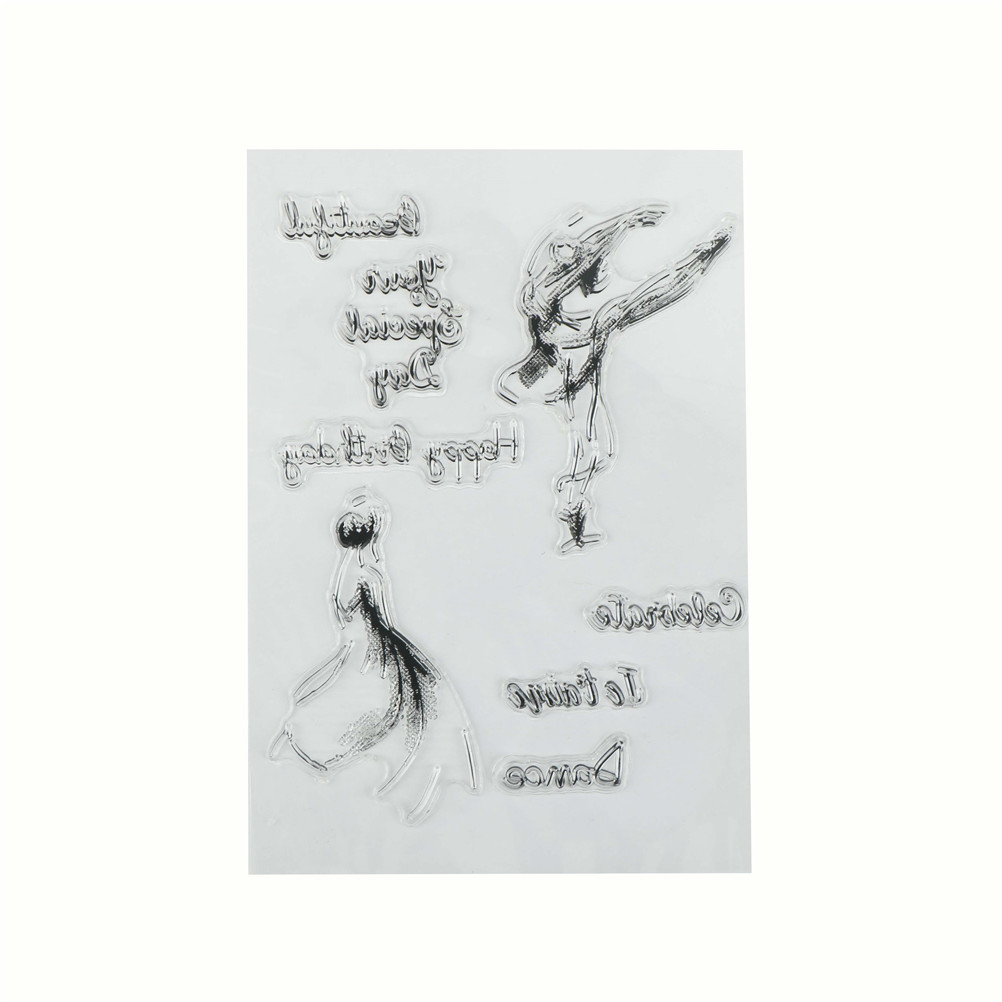 Beautiful
Your
Special
Day
Happy Birthday
Celebrate
Je t'aime
Dance